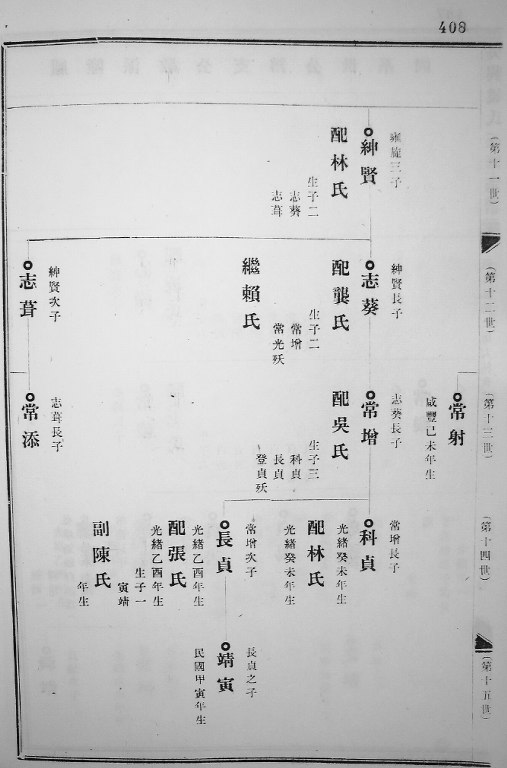 408
(第十一世)
雍旋三子
紳賢
配林氏
生子二
志葵
志葺
(第十二世)
紳賢長子
志葵
配龔氏
生子二
常增
常光殀
繼賴氏
紳賢次子
志葺
(第十三世)
常射
咸豐己未年生
志葵長子
常增
配吳氏
生子三
科貞
長貞
登貞殀
志葺長子
常添
(第十四世)
常增長子
科貞
光緒癸未年生
配林氏
光緒癸未年生
常增次子
長貞
光緒乙酉年生
配張氏
光緒乙酉年生
生子一
寅靖
副陳氏
年生
(第十五世)
長貞之子
靖寅
民國甲寅年生